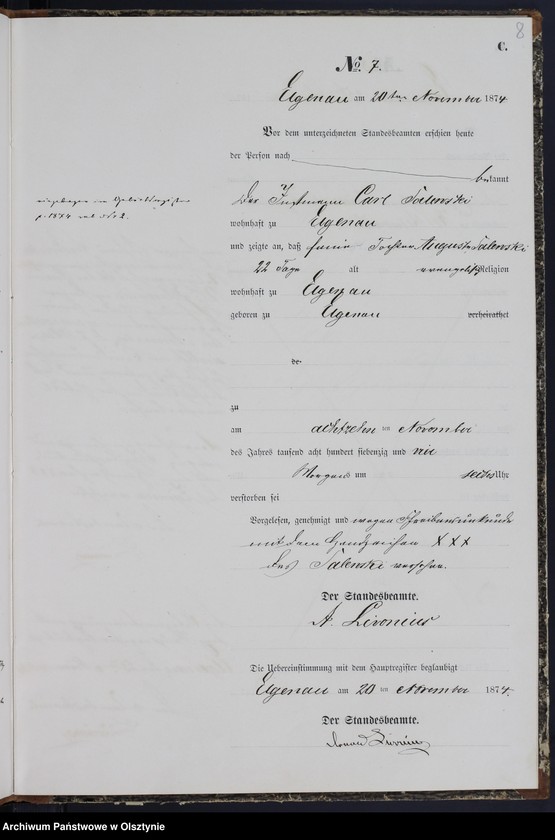 8
C.
No. 7.
Elgenau am 20ten November 1874
Vor dem unterzeichneten Standesbeamten erschien heute
der Person nach
bekannt
Der Instmann Carl Salenski
wohnhaft zu Elgenau
und zeigte an, daß seine Tochter Auguste Salenski
22 Tage alt evangelisch Religion
wohnhaft zu Elgenau
geboren zu Elgenau verheirathet
de
zu
am achtzehn ten November
des Jahres tausend acht hundert siebenzig und vier
Morgens um sechs Uhr
verstorben sei
Vorgelesen, genehmigt und wegen Schreibensunkunde
mit dem Handzeichen XXX
des Salenski versehen.
Der Standesbeamte.
A. Livonius
Die Uebereinstimmung mit dem Hauptregister beglaubigt
Elgenau am 20 ten November 1874.
Der Standesbeamte.
Livonius
eingetragen im Geburtsregister
p. 1874 sub No 2.
Archiwum Państwowe w Olsztynie